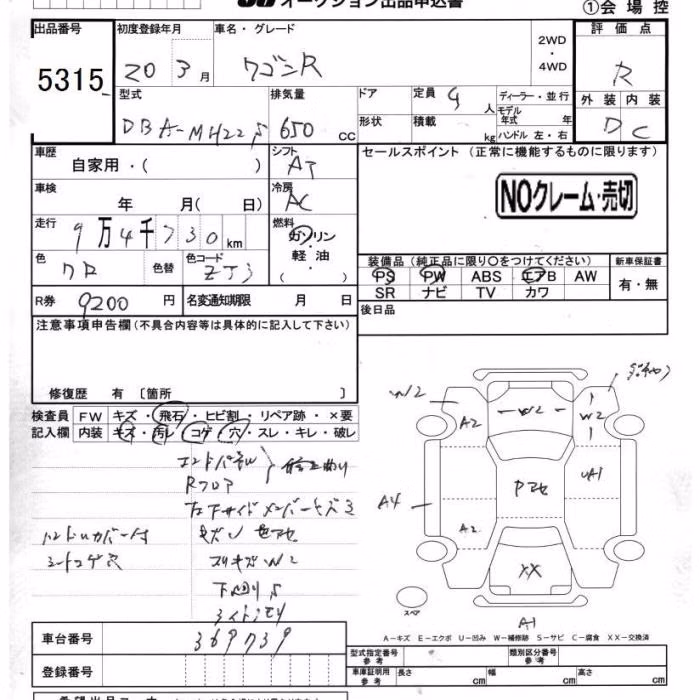 オークション出品申込書
①会場控
出品番号 初度登録年月 車名・グレード 評価点
5315 20 3月 ワゴンR 2WD・4WD R
外装 内装
D C
型式 排気量 ドア 定員 4人 ディーラー・並行
DBA-MH22S 650cc 形状 積載 kg モデル年式 年
ハンドル 左・右
車歴 シフト セールスポイント (正常に機能するものに限ります)
自家用・( ) AT
NOクレーム・売切
車検 冷房
年 月( 日) AC
走行 燃料
9万4千730km ガソリン・軽油・( )
装備品(純正品に限り○をつけてください) 新車保証書
色 色替 色コード ZJ3
PS PW ABS エアB AW 有・無
SR ナビ TV カワ
R券 9200円 名変通知期限 月 日 後日品
注意事項申告欄(不具合内容等は具体的に記入して下さい)
修復歴 有〔箇所 〕
検査員 FW キズ・飛石・ヒビ割・リペア跡・×要
記入欄 内装 キズ・汚レ・コゲ・穴・スレ・キレ・破レ
Rフロア
ハンドルカバー付
シートコゲ穴
スリキズW2
下回りS
W2
A2
W2
W2
A1
A4
A2
XX
A1
スペア
A-キズ E-エクボ U-凹み W-補修跡 S-サビ C-腐食 XX-交換済
車台番号 369739
型式指定番号 参考 類別区分番号 参考
登録番号
車庫証明用 参考 長さ cm 幅 cm 高さ cm